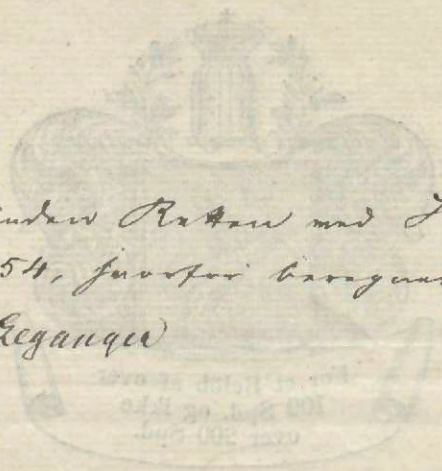 inden Retten ved
54, hvorfor beregnes
Leganger
For et Beløb af over
100 Spd. og ikke
over 200 Spd.